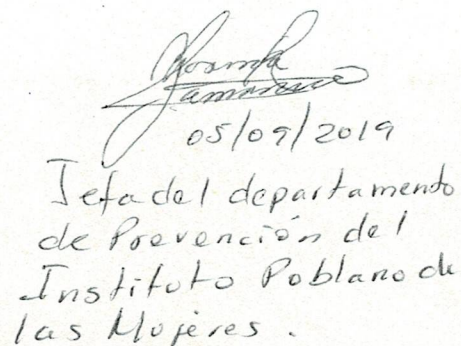 05/09/2019
Jefa del departamento
de Prevención del
Instituto Poblano de
las Mujeres.